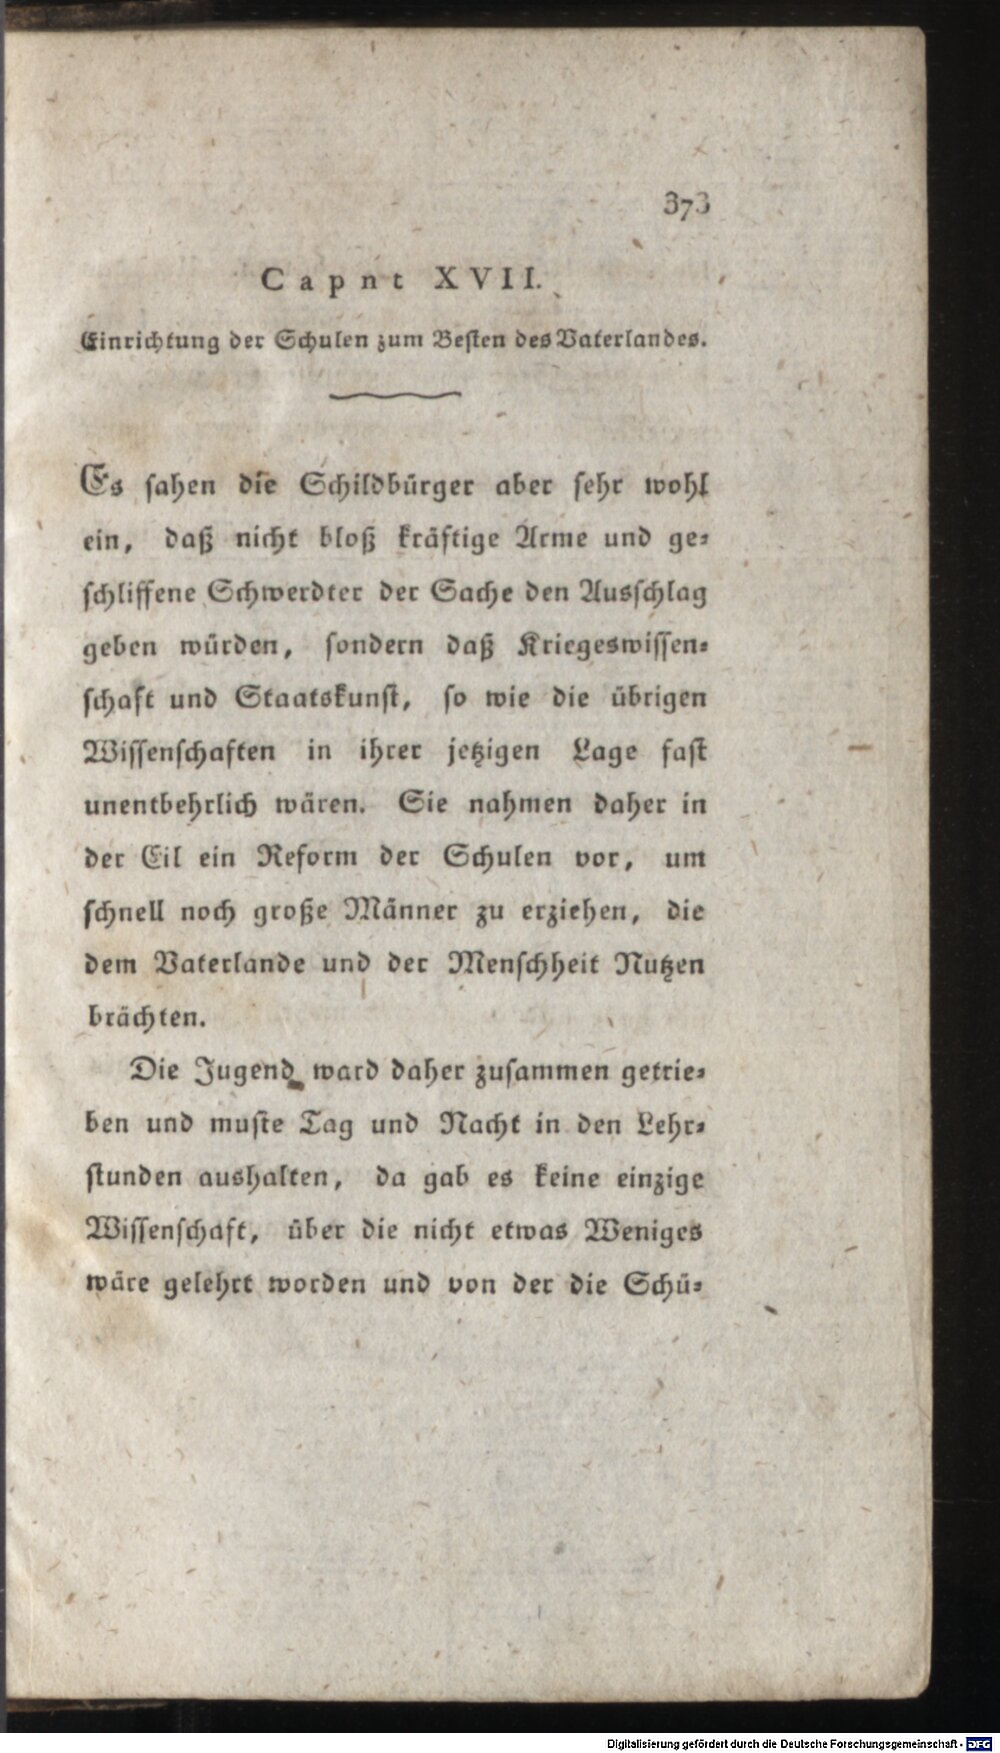 373
Capnt XVII.
Einrichtung der Schulen zum Besten des Vaterlandes.
Es sahen die Schildbürger aber sehr wohl
ein, daß nicht bloß kräftige Arme und ge-
schliffene Schwerdter der Sache den Ausschlag
geben würden, sondern daß Kriegeswissen-
schaft und Staatskunst, so wie die übrigen
Wissenschaften in ihrer jetzigen Lage fast
unentbehrlich wären. Sie nahmen daher in
der Eil ein Reform der Schulen vor, um
schnell noch große Männer zu erziehen, die
dem Vaterlande und der Menschheit Nutzen
brächten.
Die Jugend ward daher zusammen getrie-
ben und muste Tag und Nacht in den Lehr-
stunden aushalten, da gab es keine einzige
Wissenschaft, über die nicht etwas Weniges
wäre gelehrt worden und von der die Schü-
Digitalisierung gefördert durch die Deutsche Forschungsgemeinschaft - DFG